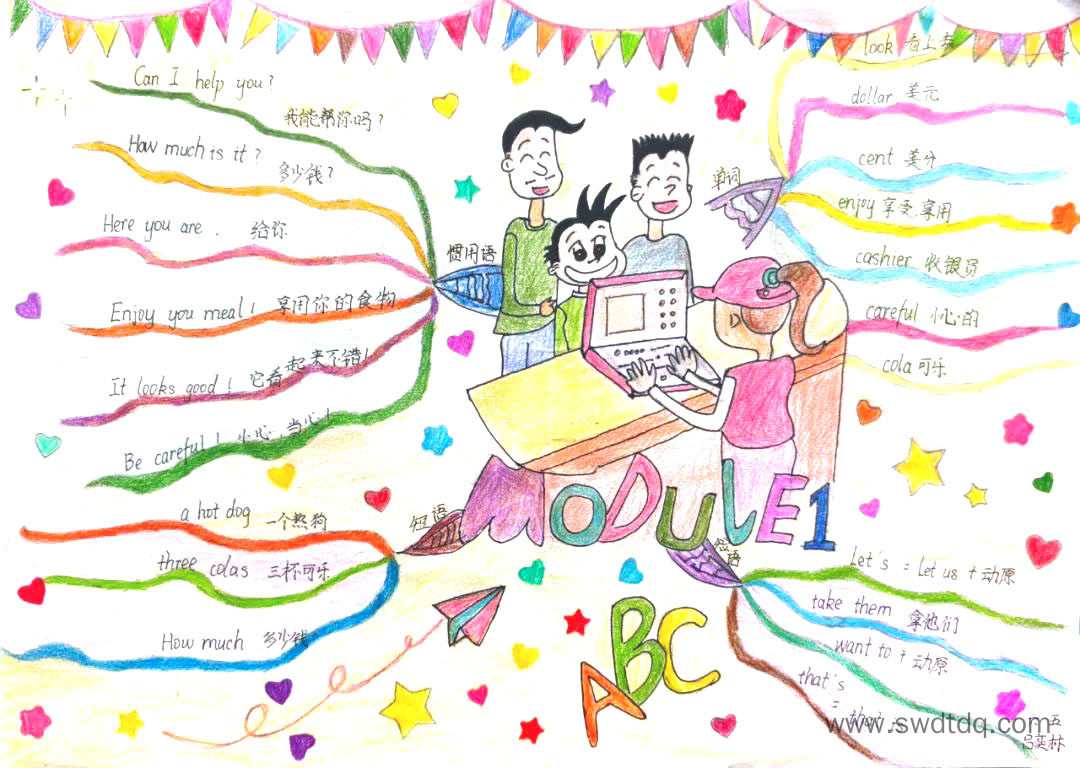 Can I help you?
我能帮你吗?
How much is it?
多少钱?
Here you are. 给你
惯用语
Enjoy you meal! 享用你的食物
It looks good! 它看起来不错!
Be careful! 小心,当心!
短语
a hot dog 一个热狗
three colas 三杯可乐
How much 多少钱
look 看上去
dollar 美元
单词
cent 美分
enjoy 享受,享用
cashier 收银员
careful 小心的
cola 可乐
MODULE 1
ABC
短语
Let's = Let us + 动原
take them 拿他们
want to + 动原
that's
=
www.swdtdq.com
五